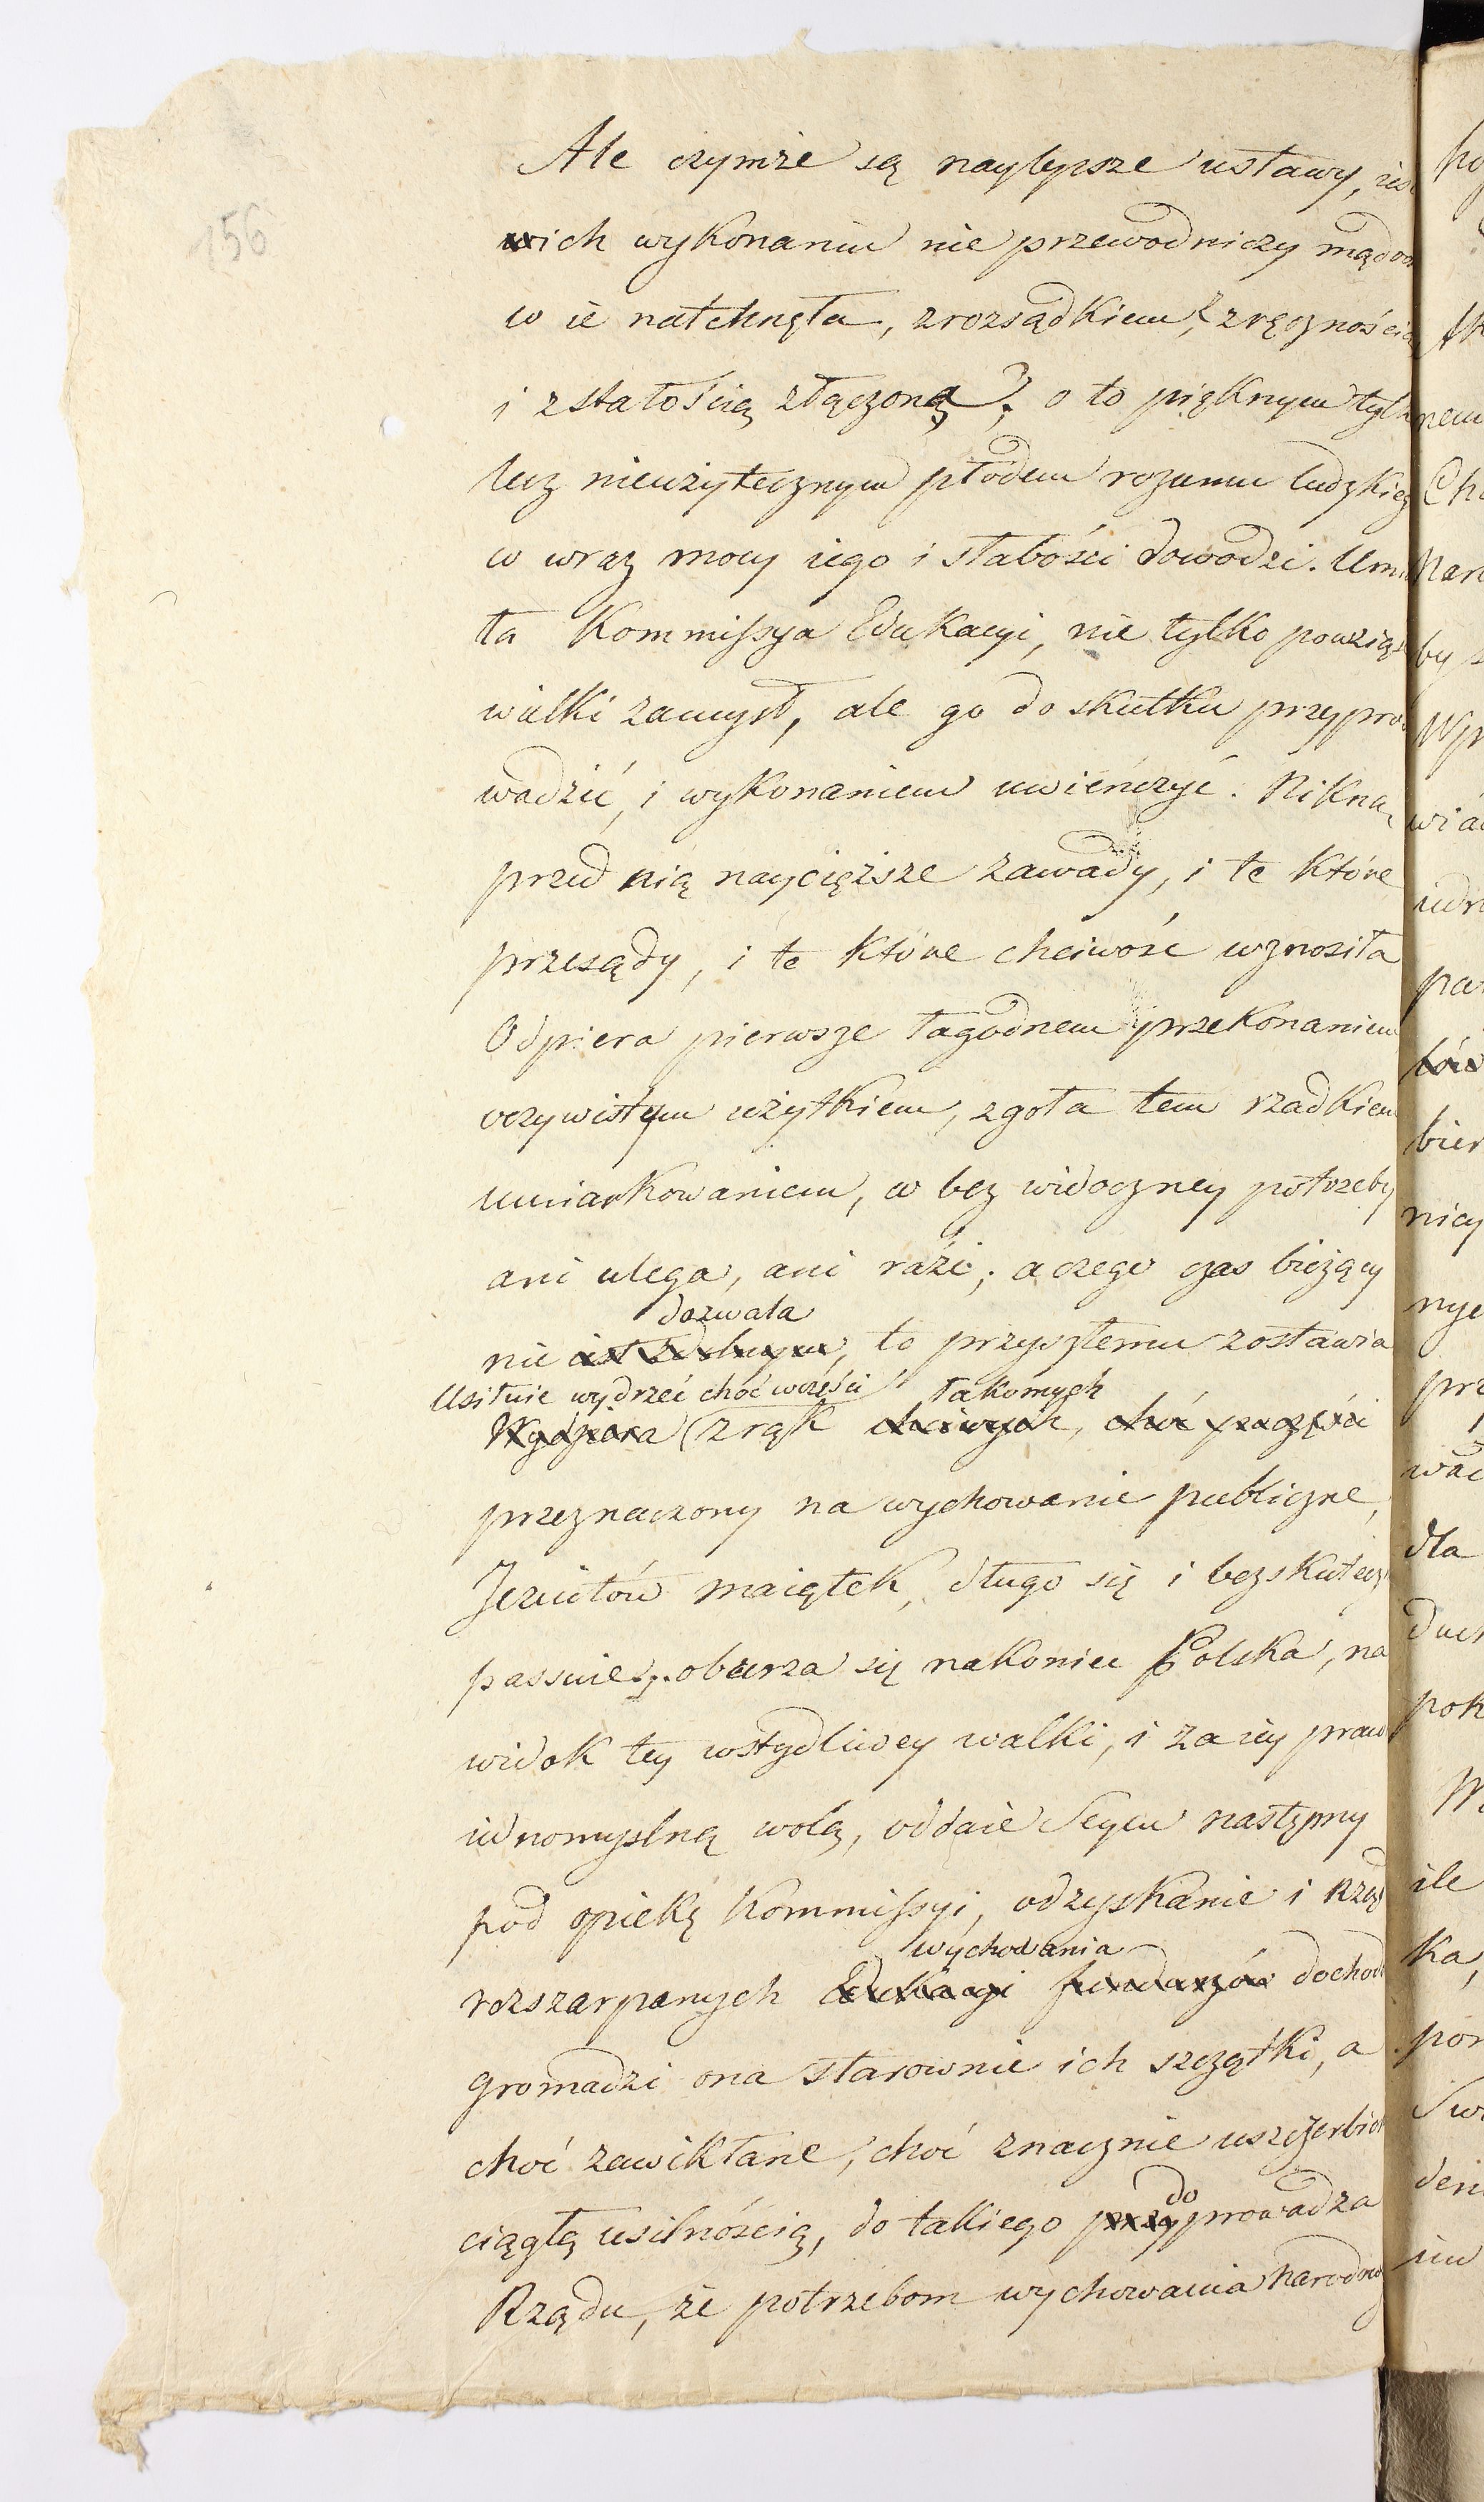 156
Ale czymże są naylepsze ustawy,
w ich wykonaniu nie przewodniczy
co ie natchnęła, z rozsądkiem, z zręcznością
i z stałością złączoną? o to pięknym
lecz nieużytecznym płodem rozumu
co wraz mocy iego i słabości dowodzi.
ta Kommissya Edukacyi, nie tylko
wielki zamysł, ale go do skutku przypro
wadzić, i wykonaniem uwieńczyć. Nikną
przed nią naycięższe zawady, i te które
przesądy, i te które chciwość wznosiła
Odpiera pierwsze łagodnem przekonaniem
oczywistym użytkiem, zgoła tem rzadkiem
umiarkowaniem, co bez widoczney potrzeby
ani ulega, ani razi; a czego czas bieżący
dozwala
nie iest zdolnym, to przyszłemu zostawia
Usiłuie wydrzeć choć w części łakomych
Wydziera z rąk chciwych, choć po części
przeznaczony na wychowanie publiczne,
Jezuitów maiątek, długo się i bezskutecz
passuie; oburza się nakoniec Polska, na
widok tey wstydliwey walki, i za iey
iednomyslną wolą, oddaie Seym następny
pod opiekę Kommissyi, odzyskanie i Rząd
wychowania
rozszarpanych Edukacyi funduszów dochod
gromadzi ona starownie ich szczątki, a
choć zawikłane, choć znacznie uszczerbio
do
ciągłą usilnością, do takiego przyprowadza
Rządu, że potrzebom wychowania